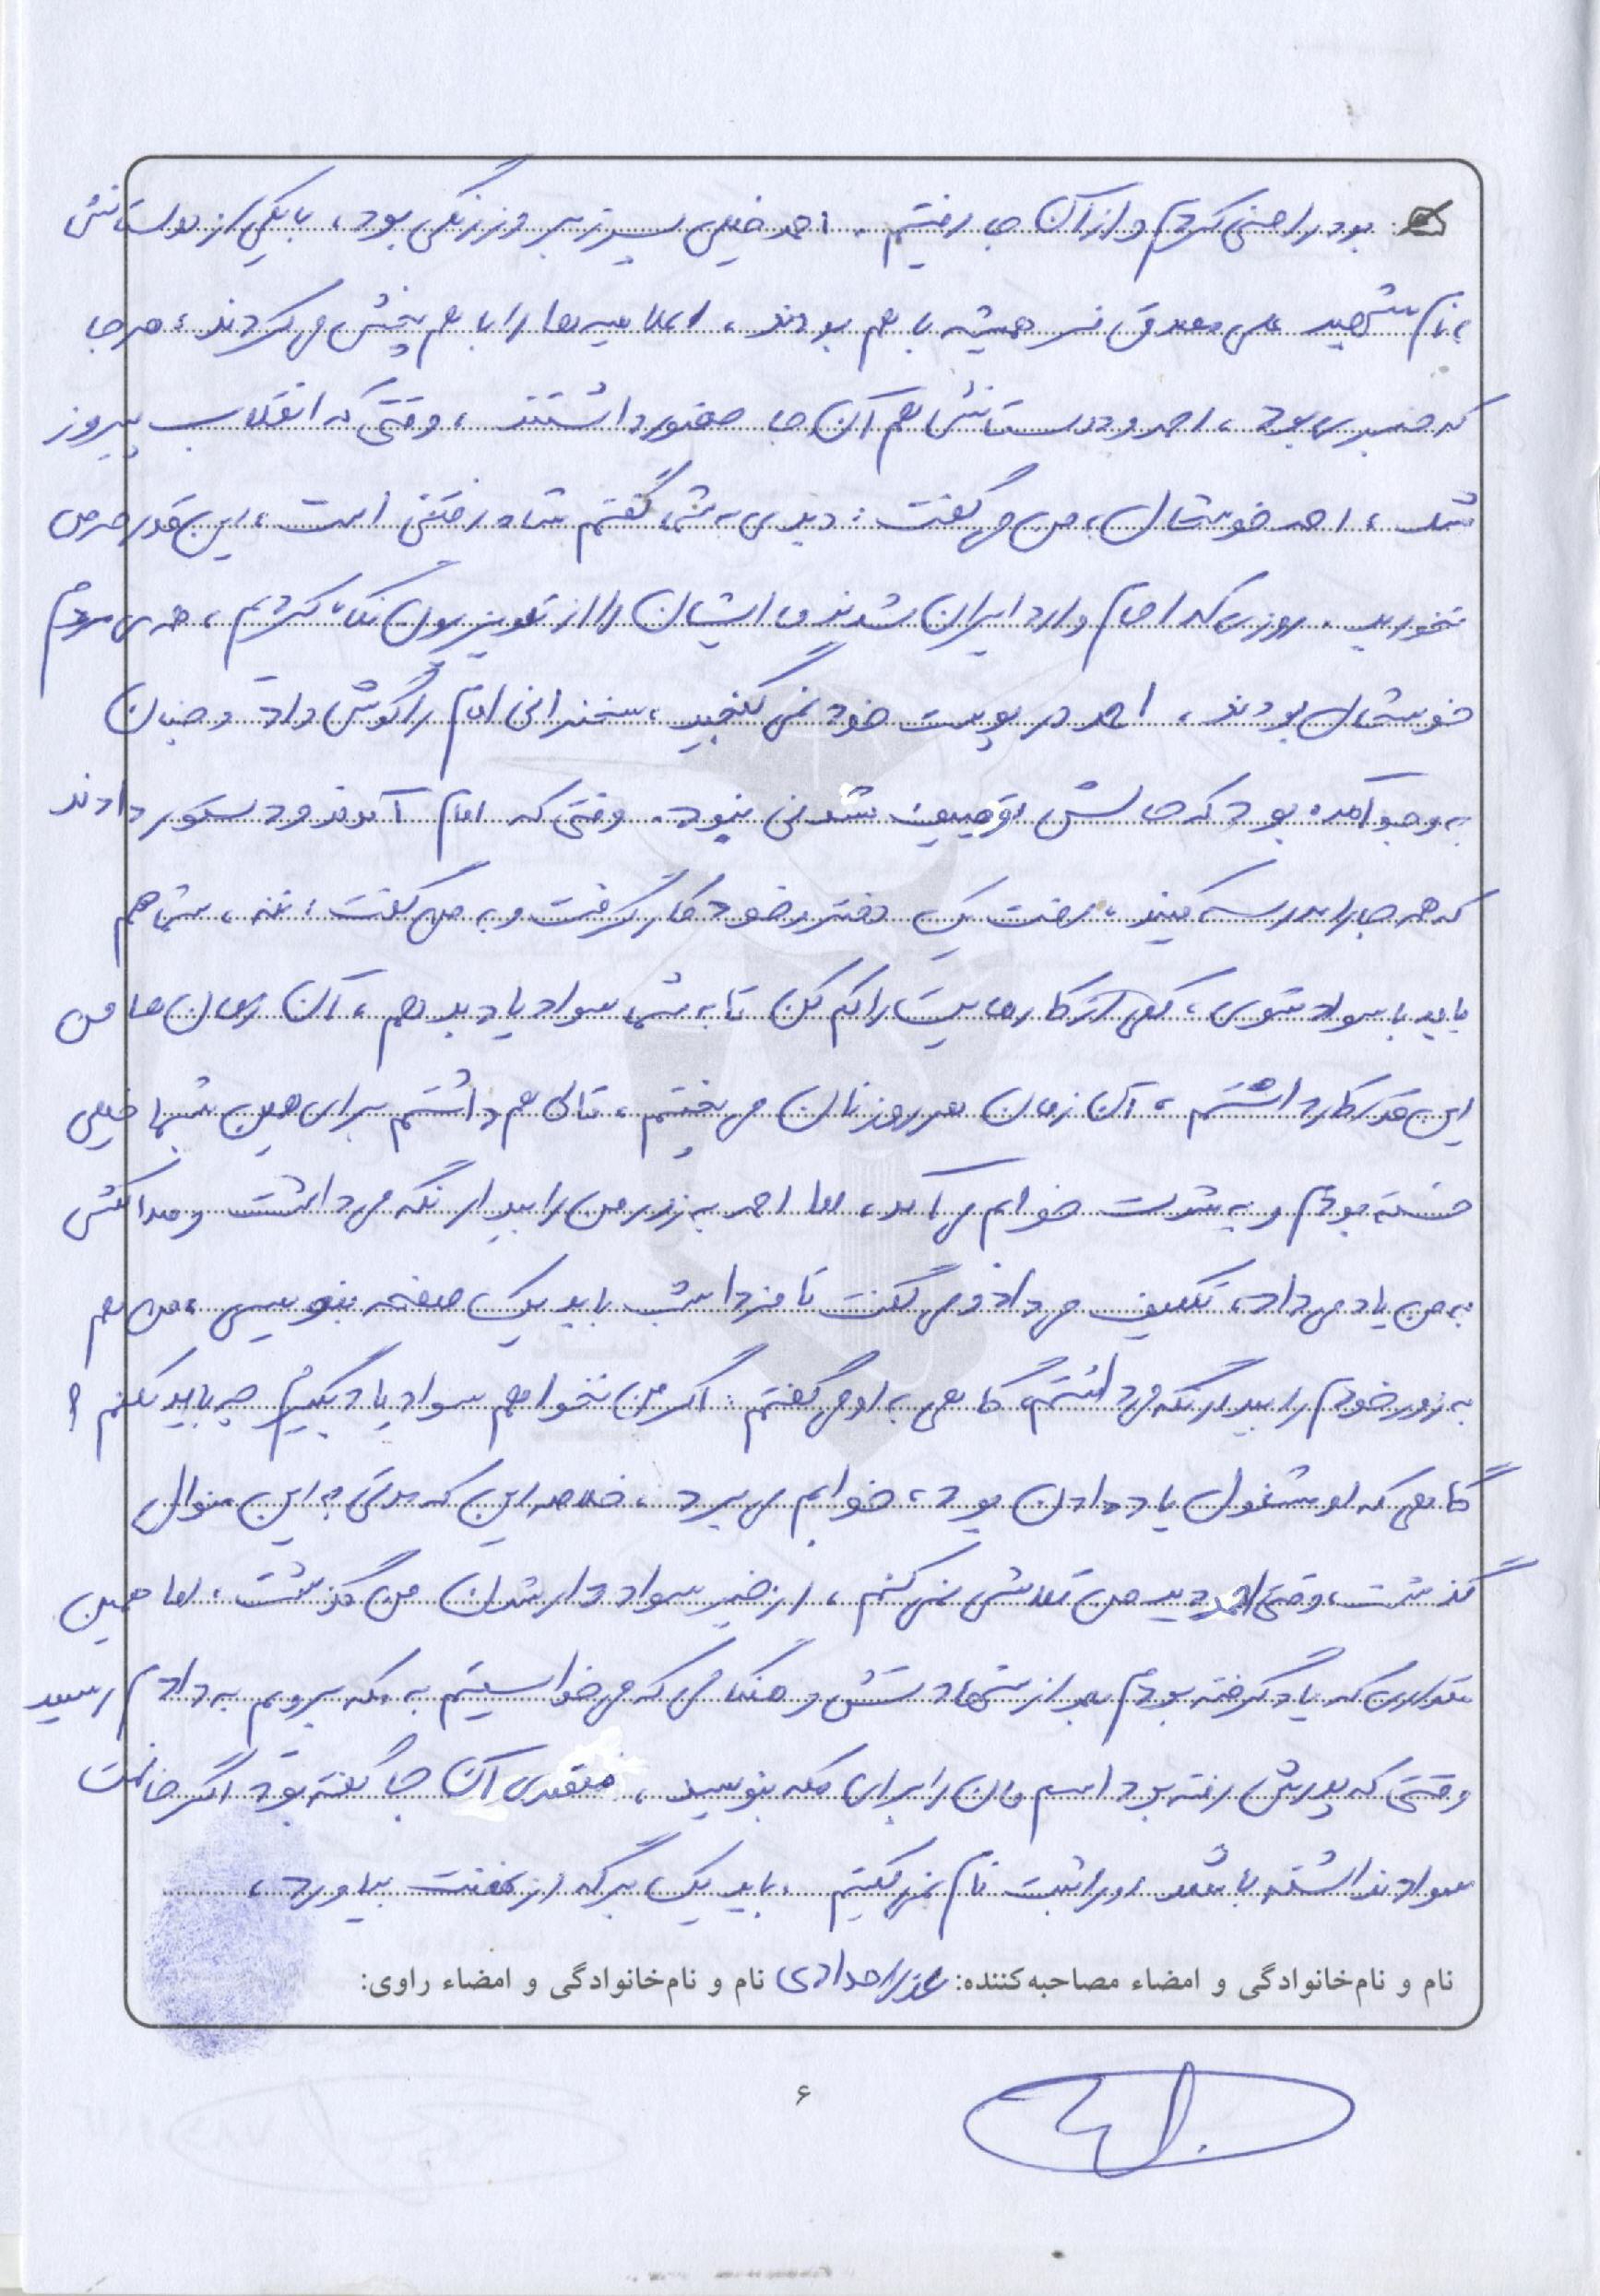 بود راضی کردم و از آن جا رفتیم. احمد خیلی پسر زبر و زرنگی بود، با یکی از دوستانش
به نام شهید علی صدق فر همیشه با هم بودند، اعلامیه ها را با هم پخش می کردند، هر جا
که خبری بود، احمد و دوستانش هم آن جا حضور داشتند، وقتی که انقلاب پیروز
شد، احمد خوشحال، می گفت: دیدی به شما گفتم شاه رفتنی است، این قدر حرص
نخورید. روزی که امام وارد ایران شدند ما ایشان را از تلویزیون نگاه کردیم، همه ی مردم
خوشحال بودند، احمد در پوست خود نمی گنجید، سخنرانی امام را گوش داد و چنان
به وجد آمده بود که حالش توصیف شدنی نبود. وقتی که امام آمدند و دستور دادند
که هر جا را مدرسه کنید، رفت یک دفتر و خودکار گرفت و به من گفت: ننه، شما هم
باید با سواد شوی، کمی از کارهایت را کم کن تا به شما سواد یاد بدهم، آن زمان ها من
این قدر کار داشتم، آن زمان هر روز نان می پختم، قالی هم داشتم برای همین شبها خیلی
خسته بودم و به شدت خوابم می آمد، اما احمد به زور من را بیدار نگه می داشت و
به من یاد می داد، تکلیف می داد و می گفت تا فردا شب باید یک صفحه بنویسی، من هم
به زور خودم را بیدار نگه می داشتم، گاهی به او می گفتم: اگر من نخواهم سواد یاد بگیرم چه باید بکنم؟
گاهی که او مشغول یاد دادن بود، خوابم می برد، خلاصه این که مدتی به این منوال
گذشت، وقتی احمد دید من تلاش نمی کنم، از خیر سواد دار شدن من گذشت، اما همین
مقداری که یاد گرفته بودم بعد از شهادتش و هنگامی که می خواستیم به مکه برویم به دادم رسید
وقتی که پدرش رفته بود اسم مان را برای مکه بنویسد، آن جا گفته بود اگر خانمت
سواد نداشته باشد او را ثبت نام نمی کنیم، باید یک برگه از نهضت بیاورد،
نام و نام‌خانوادگی و امضاء مصاحبه‌کننده: عذرا حدادی نام و نام‌خانوادگی و امضاء راوی:
۶